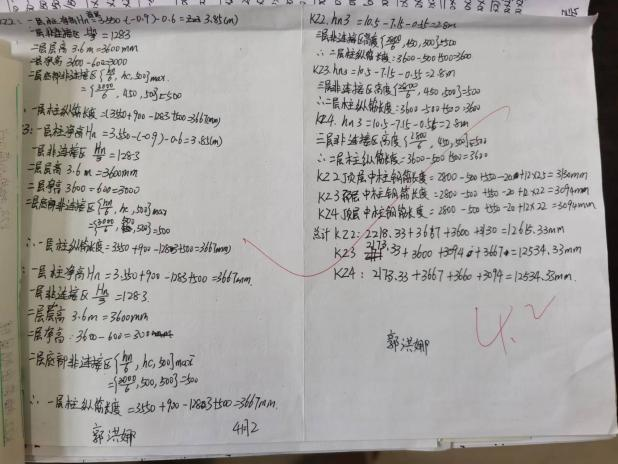 KZ2: 一层柱净高Hn = 3.550-(-0.9)-0.6 = 3.85(m)
一层非连接区 Hn/3 = 1283
二层层高 3.6m = 3600mm
二层净高 3600-600=3000
二层底部非连接区{hn/6, hc, 500}max
={3000/6, 450, 500}=500
∴ 一层柱纵筋长度=(3550+900-1283+500=3667mm)
一层柱净高Hn = 3.550-(-0.9)-0.6=3.85(m)
一层非连接区 Hn/3 =1283
二层层高 3.6m=3600mm
二层净高 3600-600=3000
二层底部非连接区{hn/6, hc, 500}max
={3000/6, 500, 500}=500
∴ 一层柱纵筋长度=3550+900-1283+500=3667mm)
一层柱净高Hn = 3.550+900-1283+500=3667mm.
一层非连接区 Hn/3 =1283
二层层高 3.6m=3600mm
二层净高: 3600-600=3000
二层底部非连接区{hn/6, hc, 500}max
={3000/6, 500, 500}=500
∴ 一层柱纵筋长度 =3550+900-1283+500=3667mm.
郭洪娜 4月2
KZ2. hn3 =10.5-7.15-0.55=2.8m
三层非连接区高度{2800/6, 450, 500}=500
∴ 二层柱纵筋长度: 3600-500+500=3600
KZ3. hn3=10.5-7.15-0.55=2.8m
三层非连接区高度{2800/6, 450, 500}=500
∴二层柱纵筋长度: 3600-500+500=3600
KZ4. hn3=10.5-7.15-0.55=2.8m
三层非连接区高度{2800/6, 450, 500}=500
∴ 二层柱纵筋长度=3600-500+500=3600
KZ2顶层中柱钢筋长度=2800-500+550-20+12×25=3130mm
KZ3顶层中柱钢筋长度=2800-500+550-20+12×22=3094mm
KZ4顶层中柱钢筋长度=2800-500+550-20+12×22=3094mm.
总计 KZ2: 2218.33+3667+3600+3130=12615.33mm
KZ3 2173.33+3600+3094+3667=12534.33mm
KZ4: 2173.33+3667+3600+3094=12534.33mm.
郭洪娜
4.2